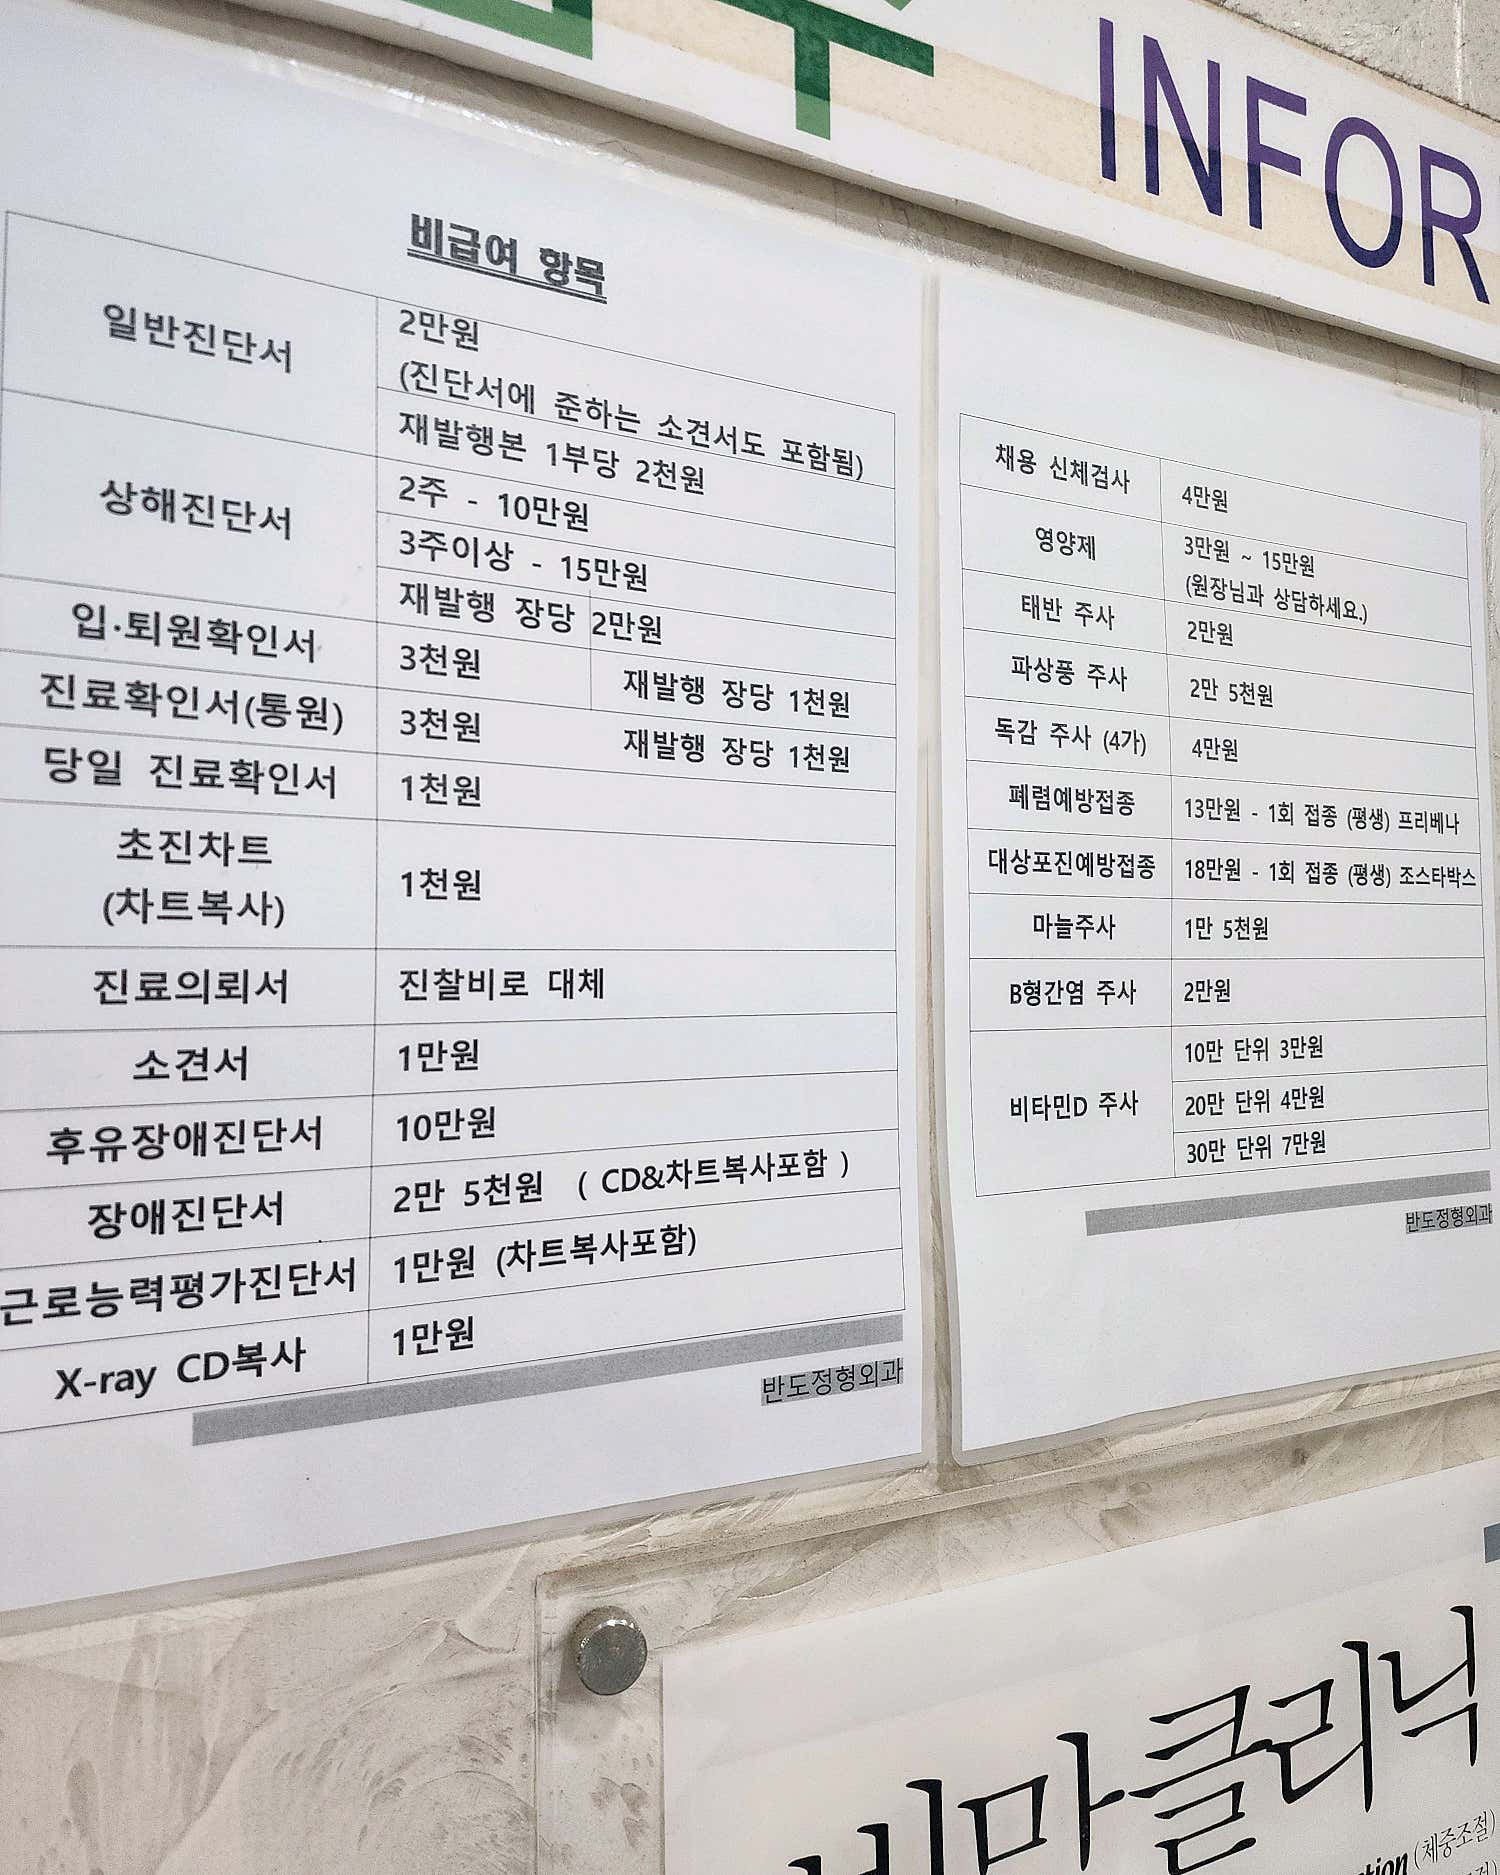 INFOR
비급여 항목
일반진단서
2만원
(진단서에 준하는 소견서도 포함됨)
재발행본 1부당 2천원
상해진단서
2주 - 10만원
3주이상 - 15만원
재발행 장당 2만원
입·퇴원확인서
3천원
재발행 장당 1천원
진료확인서(통원)
3천원
재발행 장당 1천원
당일 진료확인서
1천원
초진차트
(차트복사)
1천원
진료의뢰서
진찰비로 대체
소견서
1만원
후유장애진단서
10만원
장애진단서
2만 5천원 ( CD&차트복사포함 )
근로능력평가진단서
1만원 (차트복사포함)
X-ray CD복사
1만원
반도정형외과
채용 신체검사
4만원
영양제
3만원 ~ 15만원
(원장님과 상담하세요.)
태반 주사
2만원
파상풍 주사
2만 5천원
독감 주사 (4가)
4만원
폐렴예방접종
13만원 - 1회 접종 (평생) 프리베나
대상포진예방접종
18만원 - 1회 접종 (평생) 조스타박스
마늘주사
1만 5천원
B형간염 주사
2만원
비타민D 주사
10만 단위 3만원
20만 단위 4만원
30만 단위 7만원
반도정형외과
비마클리닉
(체중조절)